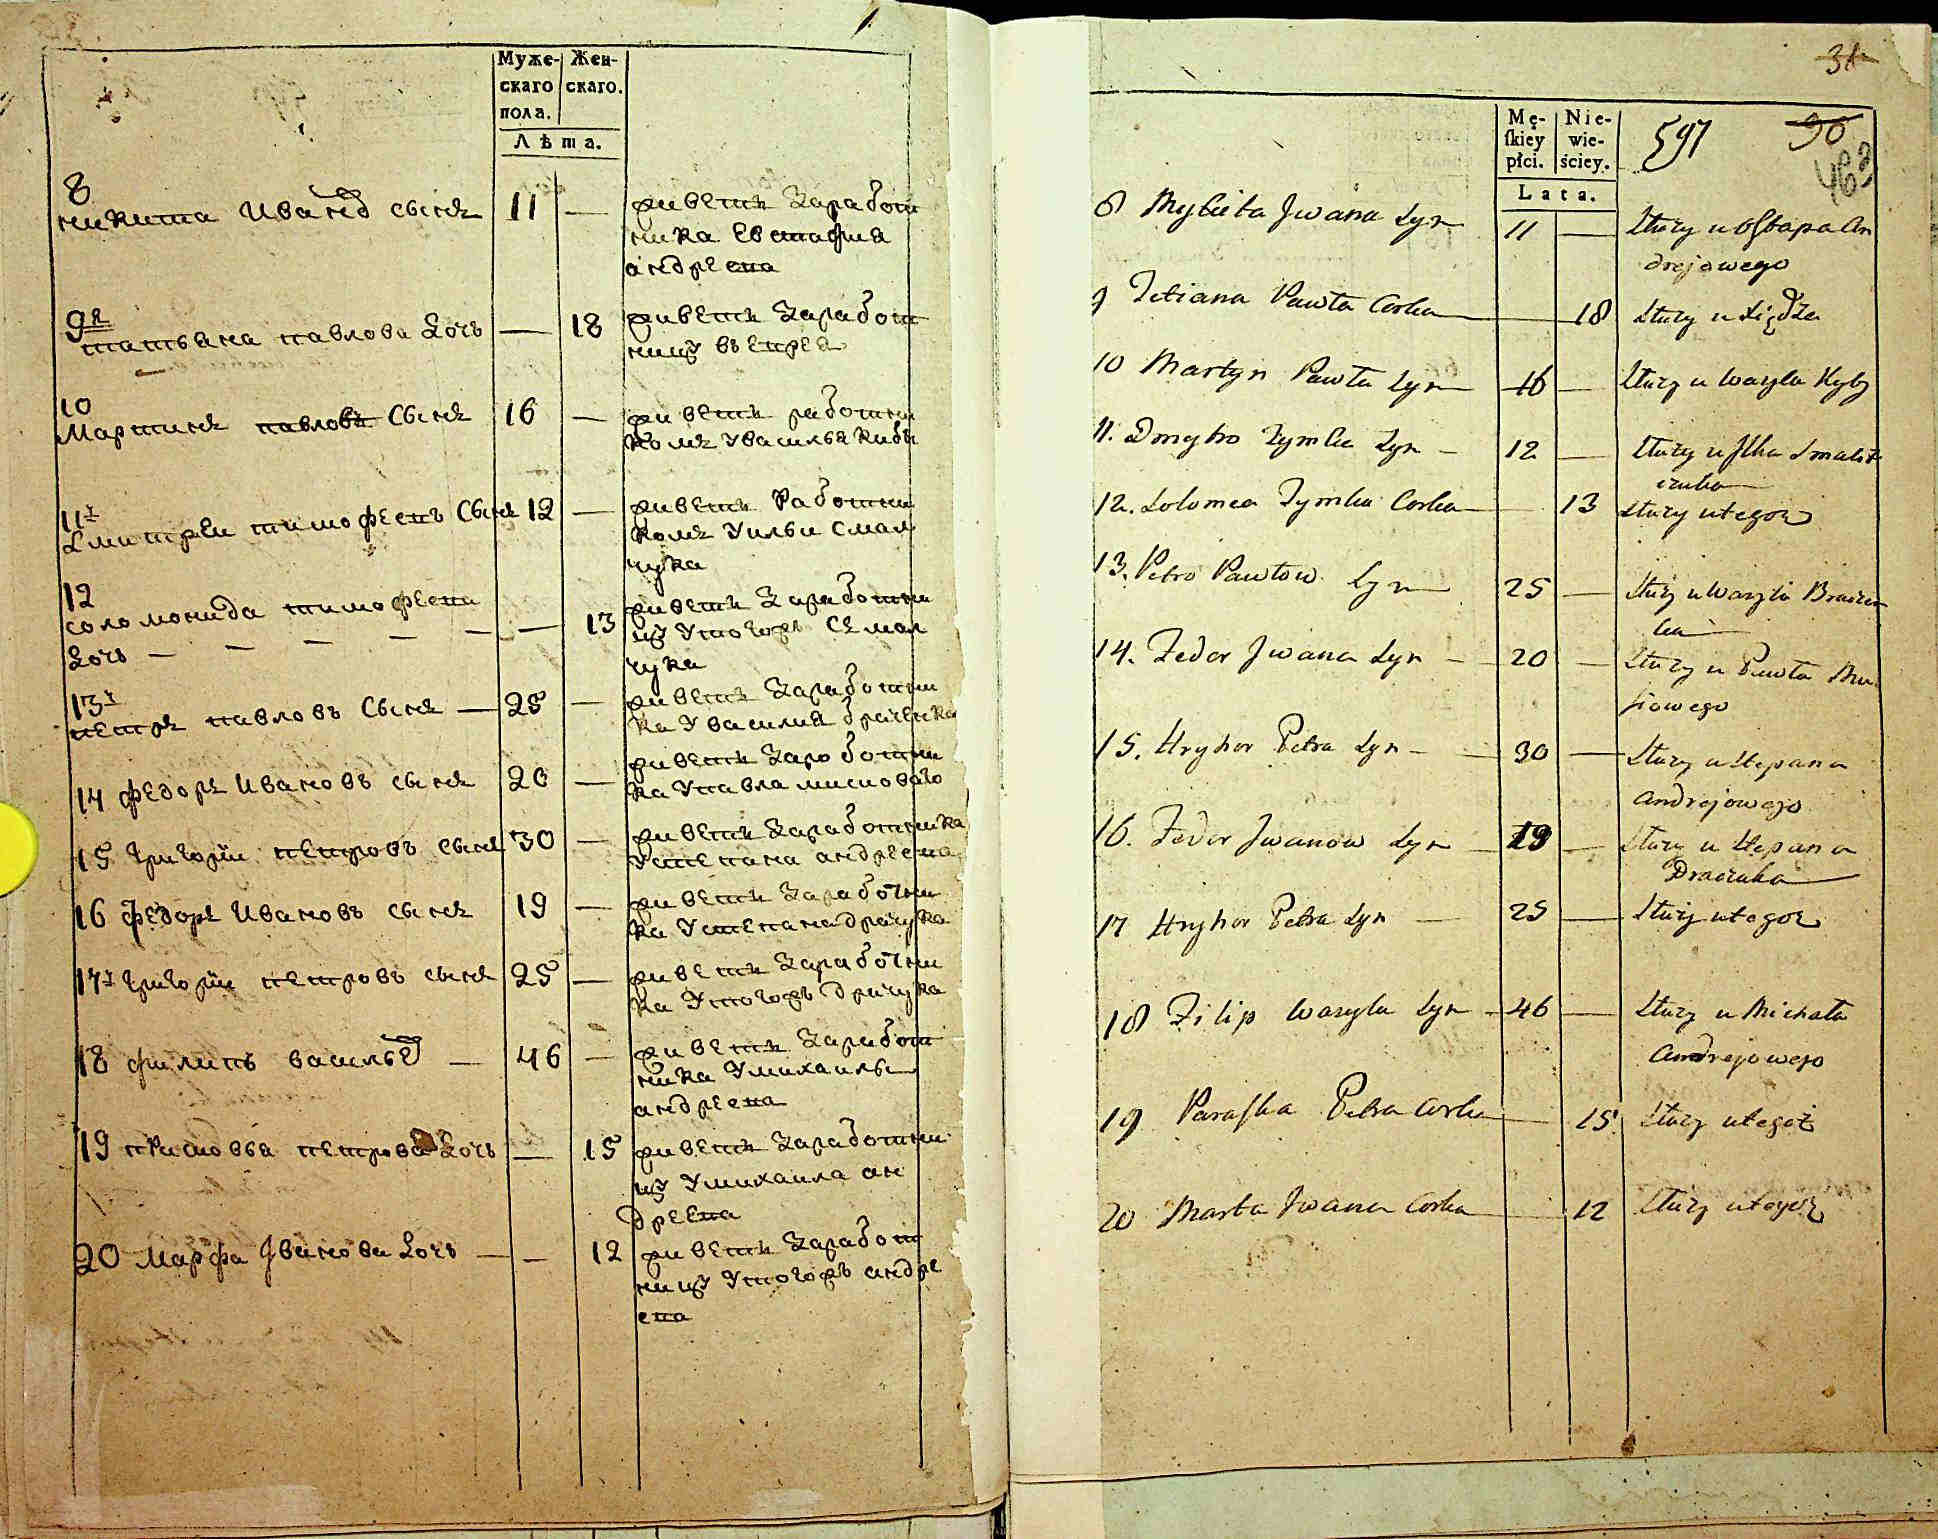 Муже-
скаго
пола.
Жен-
скаго.
Лѣта.
8
никита Ивановъ сынъ 11 — живетъ Заработ
ника Евстафия
андреева
9я
татьяна павлова дочь — 18 живетъ Заработ
ницу
10
Мартинъ павловъ Сынъ 16 — живетъ работни
комъ У василья
11й
дмитреи тимофеевъ Сынъ 12 — живетъ Работни
комъ Уильи Смал
чука
12
соломонида тимофеева
дочь — — — — — — 13 живетъ Заработни
цу Утогожъ Смал
чука
13й
петръ павловъ Сынъ — 25 — живетъ Заработни
ка У василия
14 федоръ Ивановъ сынъ 20 — живетъ Заработни
ка Упавла мисиоваго
15 григорiи петровъ сынъ 30 — живетъ Заработника
Устепана андреева
16 федоръ Ивановъ сынъ 19 — живетъ Заработни
ка Устепана драчука
17й григорiи петровъ сынъ 25 — живетъ Заработни
ка Утогожъ драчука
18 филипъ васильевъ — 46 — живетъ Заработ
ника Умихаилы
андреева
19 прасковья петрова дочь — 15 живетъ Заработни
цу Умихаила ан
дреева
20 Марфа Iванова дочь — — 12 живетъ Заработ
ницу Утогожъ андре
ева
31
Mę-
skiey
płci.
Nie-
wie-
ściey.
Lata.
597
90
463
8 Mykita Jwana Syn 11 — Służy u Ostapa An
drejowego
9 Tetiana Pawła Corka — 18 Służy u Xiędza
10 Martyn Pawła Syn — 16 — Służy u Wasyla
11. Dmytro Tymka Syn — 12 — Służy u Ilka Smal
czuka
12. Solomea Tymka Corka — 13 Służy u tegoż
13. Petro Pawłow Syn — 25 — Służy u Wasyla
14. Fedor Jwana Syn — 20 — Służy u Pawła Mi
siowego
15. Hryhor Petra Syn — 30 — Służy u Stepana
Andrejowego
16. Fedor Jwanow Syn — 19 — Służy u Stepana
Draczuka
17 Hryhor Petra Syn — 25 — Służy u tegoż
18 Filip Wasyla Syn — 46 — Służy u Michała
Andrejowego
19 Paraska Petra Corka — 15 Służy u tegoż
20 Marta Jwana Corka — 12 Służy u tegoż